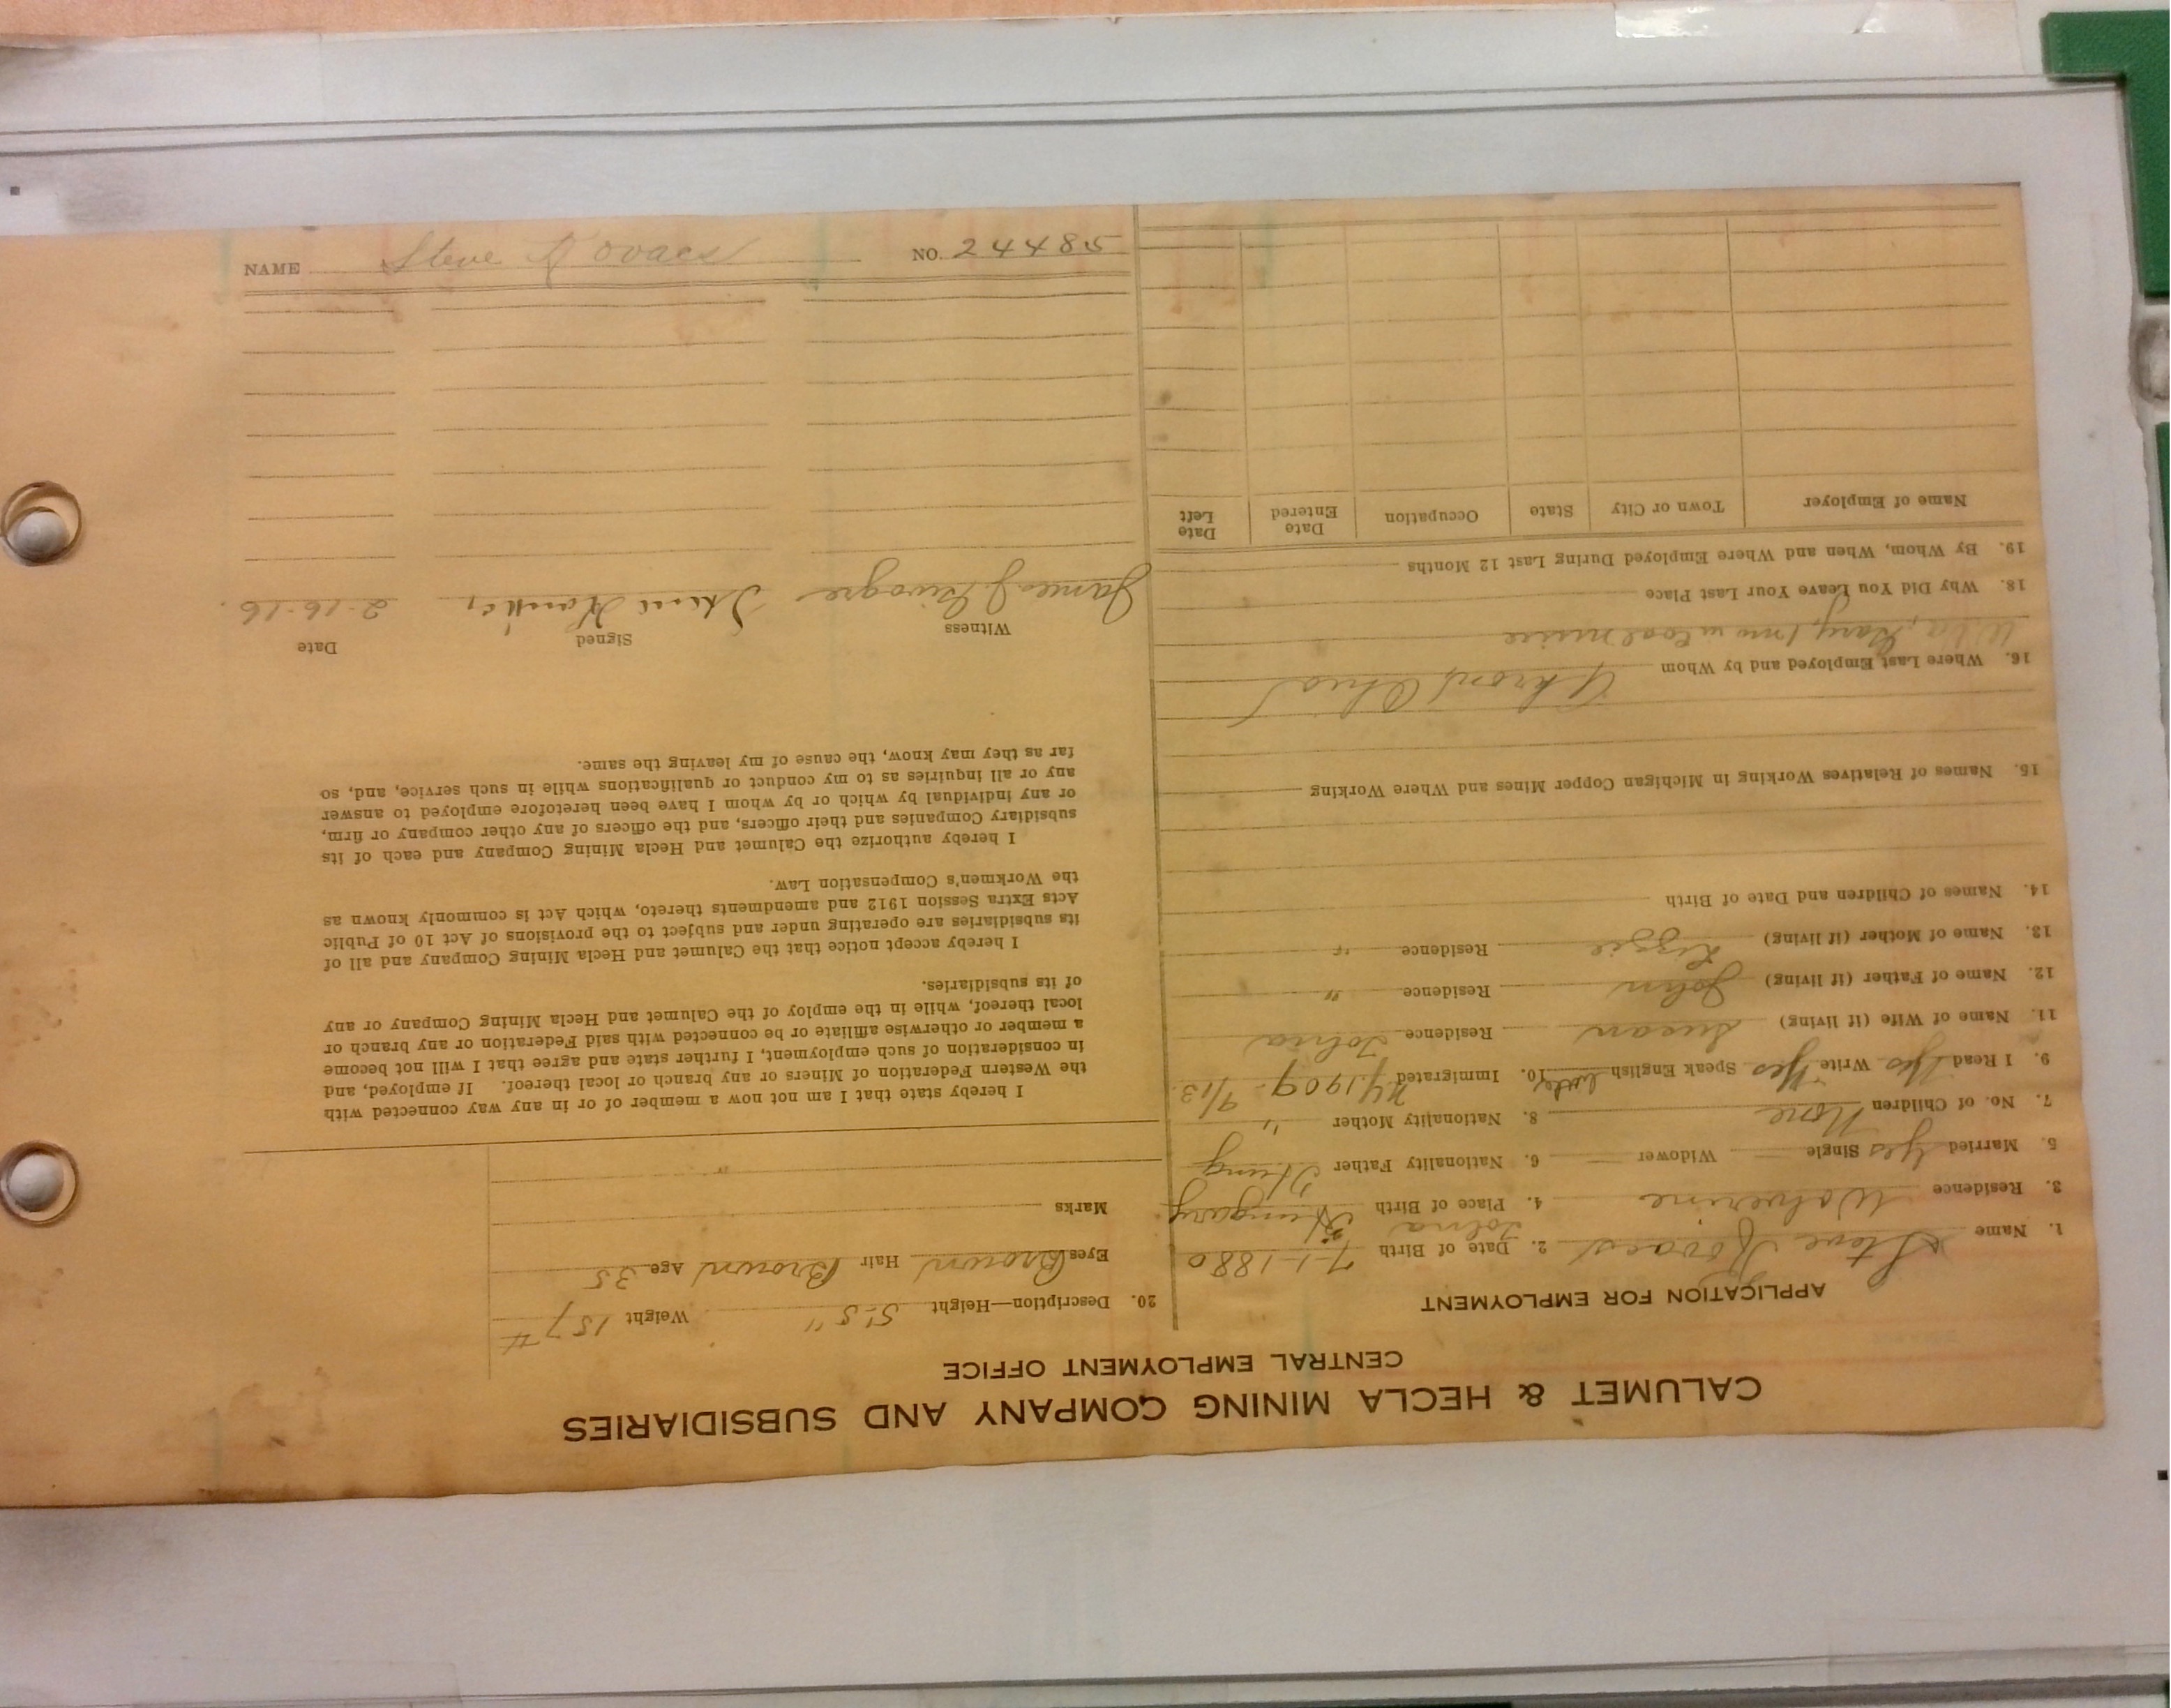 CALUMET & HECLA MINING COMPANY AND SUBSIDIARIES
CENTRAL EMPLOYMENT OFFICE
APPLICATION FOR EMPLOYMENT
1. Name Steve Kovacs 2. Date of Birth 7-1-1880
3. Residence Wolverine 4. Place of Birth Tolna Hungary
5. Married Yes Single Widower 6. Nationality Father Hung
7. No. of Children None 8. Nationality Mother "
9. I Read Yes Write Yes Speak English little 10. Immigrated NY 1909 - 9/13.
11. Name of Wife (if living) Susan Residence Tolna
12. Name of Father (if living) John Residence "
13. Name of Mother (if living) Lizzie Residence "
14. Names of Children and Date of Birth
15. Names of Relatives Working in Michigan Copper Mines and Where Working
16. Where Last Employed and by Whom Akron, Ohio
Gary, coal mine
18. Why Did You Leave Your Last Place
19. By Whom, When and Where Employed During Last 12 Months
Name of Employer Town or City State Occupation Date Entered Date Left
20. Description—Height 5'-5" Weight 157#
Eyes Brown Hair Brown Age 35
Marks
I hereby state that I am not now a member of or in any way connected with
the Western Federation of Miners or any branch or local thereof. If employed, and
in consideration of such employment, I further state and agree that I will not become
a member or otherwise affiliate or be connected with said Federation or any branch or
local thereof, while in the employ of the Calumet and Hecla Mining Company or any
of its subsidiaries.
I hereby accept notice that the Calumet and Hecla Mining Company and all of
its subsidiaries are operating under and subject to the provisions of Act 10 of Public
Acts Extra Session 1912 and amendments thereto, which Act is commonly known as
the Workmen's Compensation Law.
I hereby authorize the Calumet and Hecla Mining Company and each of its
subsidiary Companies and their officers, and the officers of any other company or firm,
or any individual by which or by whom I have been heretofore employed to answer
any or all inquiries as to my conduct or qualifications while in such service, and, so
far as they may know, the cause of my leaving the same.
Witness Signed Date
James J. 2-16-16.
NAME Steve Kovacs NO. 24485